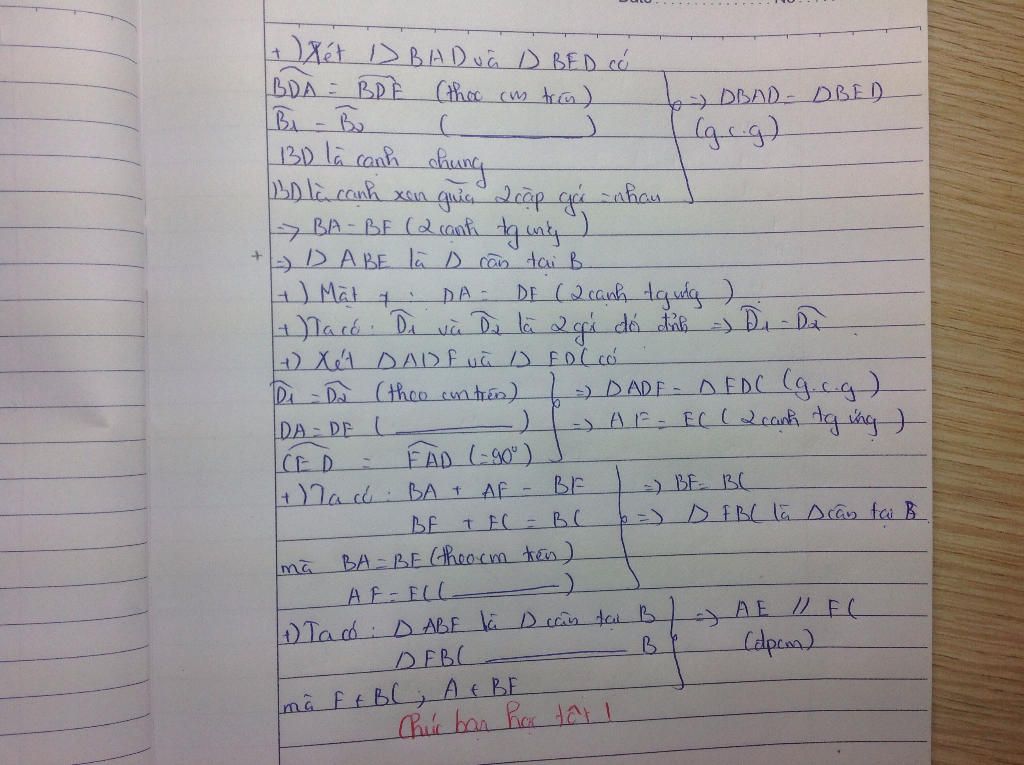 +) Xét Δ BAD và Δ BED có
BDA = BDE (theo cm trên)
B1 = B2 (———)
=> ΔBAD = ΔBED
(g.c.g)
BD là cạnh chung
BD là cạnh xen giữa 2 cặp góc = nhau
=> BA = BE (2 cạnh tg ứng)
+ => Δ ABE là Δ cân tại B
+) Mặt ≠ : DA = DE (2 cạnh tg ứng)
+) Ta có: D1 và D2 là 2 góc đố đỉnh => D1 = D2
+) Xét ΔADF và Δ EDC có
D1 = D2 (theo cm trên)
DA = DE (———)
CED = FAD (=90°)
=> ΔADF = Δ EDC (g.c.g)
=> AF = EC (2 cạnh tg ứng)
+) Ta có: BA + AF = BF
BE + EC = BC
mà BA = BE (theo cm trên)
AF = EC (———)
=> BF = BC
=> Δ FBC là Δ cân tại B
+) Ta có: Δ ABE là Δ cân tại B
Δ FBC ——— B
mà E ∈ BC ; A ∈ BF
=> AE // FC
(đpcm)
Chúc bạn học tốt !